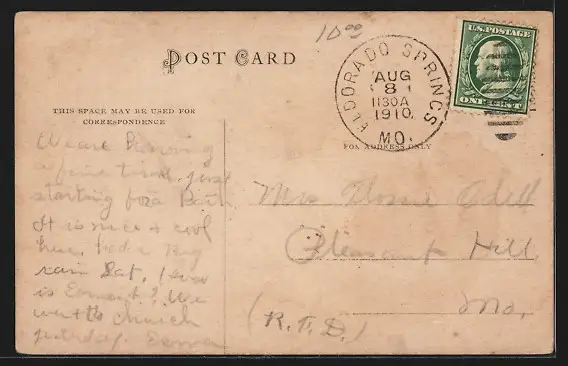 10.00
POST CARD
ELDORADO SPRINGS
AUG
8
1130A
1910
MO.
U.S.POSTAGE
ONE CENT
THIS SPACE MAY BE USED FOR
CORRESPONDENCE
FOR ADDRESS ONLY
We are having
a fine time, just
starting for a
It is nice & cool
here, had a big
rain Sat. How
is ? We
went to church
yesterday.
Mrs Flossie Odell
Pleasant Hill,
Mo.
(R.F.D.)